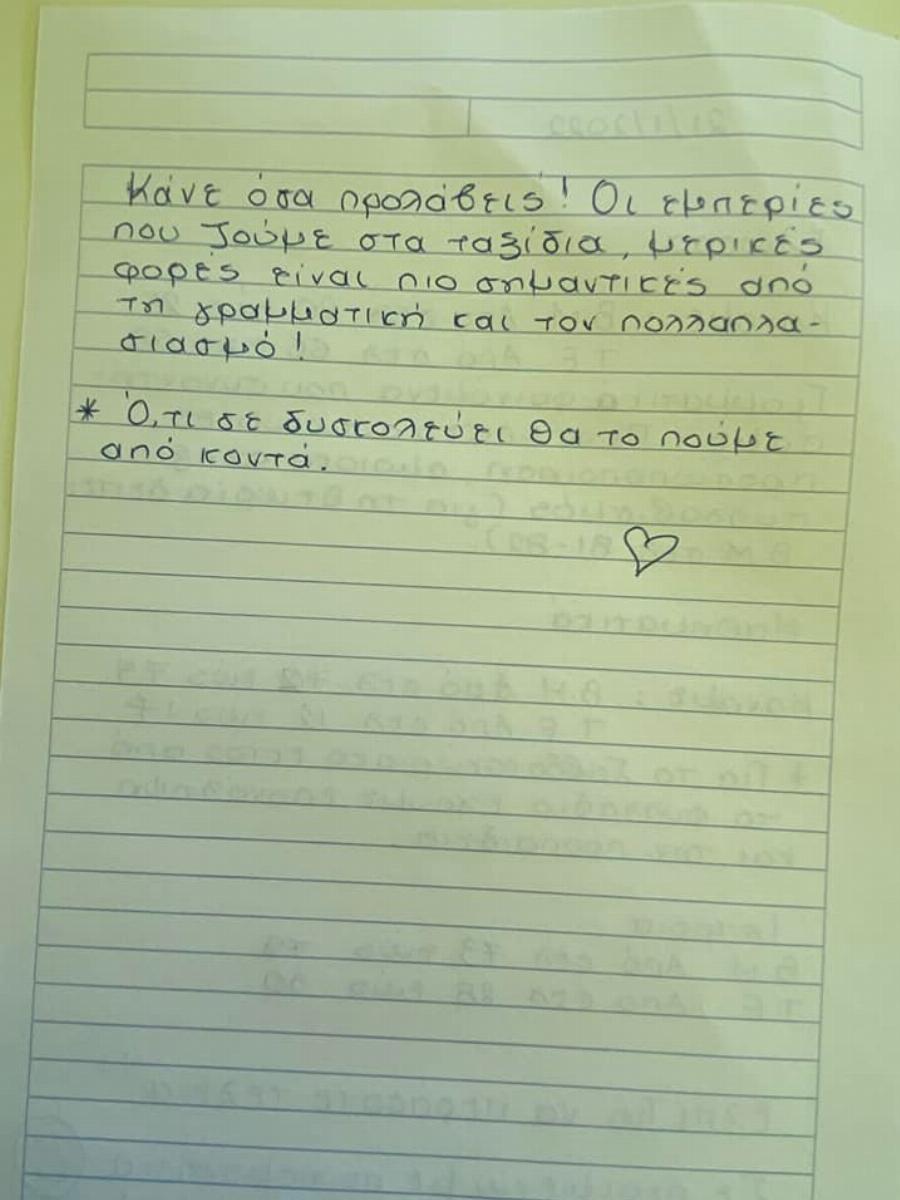 Κάνε όσα προλάβεις! Οι εμπειρίες
που ζούμε στα ταξίδια, μερικές
φορές είναι πιο σημαντικές από
τη γραμματική και τον πολλαπλα-
σιασμό!
* Ό,τι σε δυσκολεύει θα το πούμε
από κοντά.